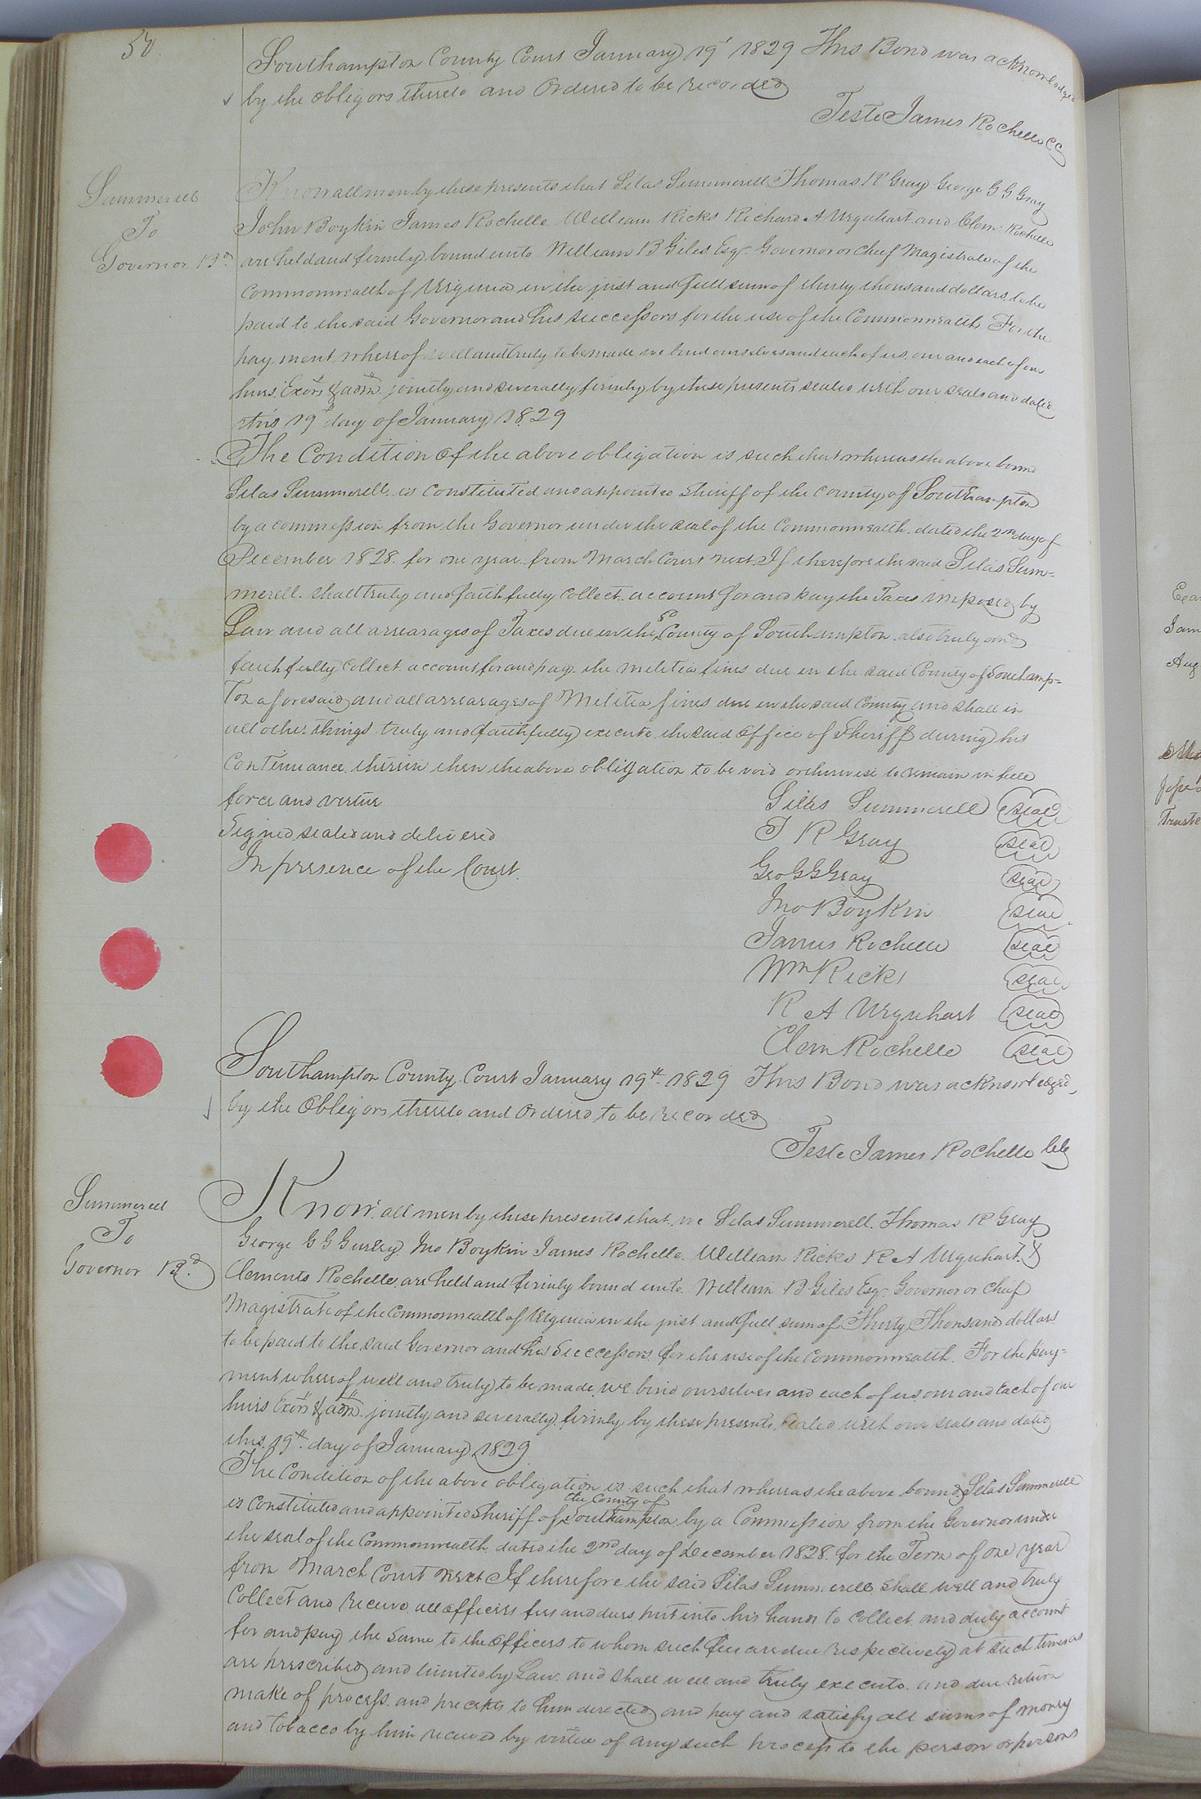 50
Southampton County Court January 19th 1829 This Bond was acknowledged
by the obligors thereto and Ordered to be recorded
Teste James Rochelle CC
Summerell
To
Governor Bd
Know all men by these presents that Silas Summerell Thomas R Gray George G G Gray
John Boykin James Rochelle William Ricks Richard A Urquhart and Clem: Rochelle
are held and firmly bound unto William B Giles Esqr Governor or Chief Magistrate of the
Commonwealth of Virginia in the just and full sum of thirty thousand dollars to be
paid to the said Governor and his successors for the use of the Commonwealth For the
payment whereof well and truly to be made we bind ourselves and each of us our and each of our
heirs Exors & admr jointly and severally firmly by these presents sealed with our seals and dated
this 19th day of January 1829
The Condition of the above obligation is such that whereas the above bound
Silas Summerell is Constituted and appointed Sheriff of the County of Southampton
by a commission from the Governor under the seal of the Commonwealth dated the 2nd day of
December 1828 for one year from March Court next If therefore the said Silas Sum=
merell shall truly and faithfully Collect account for and pay the Taxes imposed by
Law and all arrearages of Taxes due in the sd County of Southampton also truly and
faithfully Collect account for and pay the militia fines due in the said County of Southamp=
ton aforesaid and all arrearages of Militia fines due in the said County and shall in
all other things truly and faithfully execute the said office of Sheriff during his
Continuance therein then the above obligation to be void otherwise to remain in full
force and virtue
Silas Summerell seal
Signed sealed and delivered
T R Gray seal
In presence of the Court
Geo G G Gray seal
Jno Boykin seal
James Rochelle seal
Wm Ricks seal
R A Urquhart seal
Clem Rochelle seal
Southampton County Court January 19th 1829 This Bond was acknowledged
by the Obligors thereto and Ordered to be recorded
Teste James Rochelle Clk
Summerell
To
Governor Bd
Know all men by these presents that we Silas Summerell Thomas R Gray
George G G Gurley Jno Boykin James Rochelle William Ricks R A Urquhart &
Clements Rochelle are held and firmly bound unto William B Giles Esqr Governor or Chief
Magistrate of the Commonwealth of Virginia in the just and full sum of Thirty Thousand dollars
to be paid to the said Governor and his Successors for the use of the Commonwealth. For the pay=
ment whereof well and truly to be made we bind ourselves and each of us our and each of our
heirs Exors & admr jointly and severally firmly by these presents sealed with our seals and dated
this 19th day of January 1829
The Condition of the above obligation is such that whereas the above bound Silas Summerell
is Constituted and appointed Sheriff of the County of Southampton by a Commission from the Governor under
the seal of the Commonwealth dated the 2nd day of December 1828 for the Term of one year
from March Court next If therefore the said Silas Summerell shall well and truly
Collect and receive all officers fees and dues put into his hands to collect and duly account
for and pay the same to the officers to whom such fees are due respectively at such times as
are prescribed and limited by Law and shall well and truly execute and due return
make of process and precepts to him directed and pay and satisfy all sums of money
and Tobacco by him received by virtue of any such process to the person or persons
Jam
Aug
Trustee